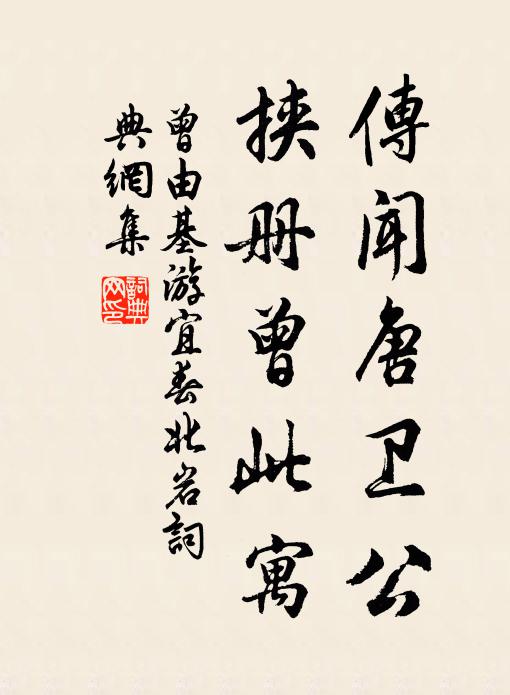 傳闻唐卫公
挟册曾此寓
曾由基游宜春北岩詞
典網集
詞典网印